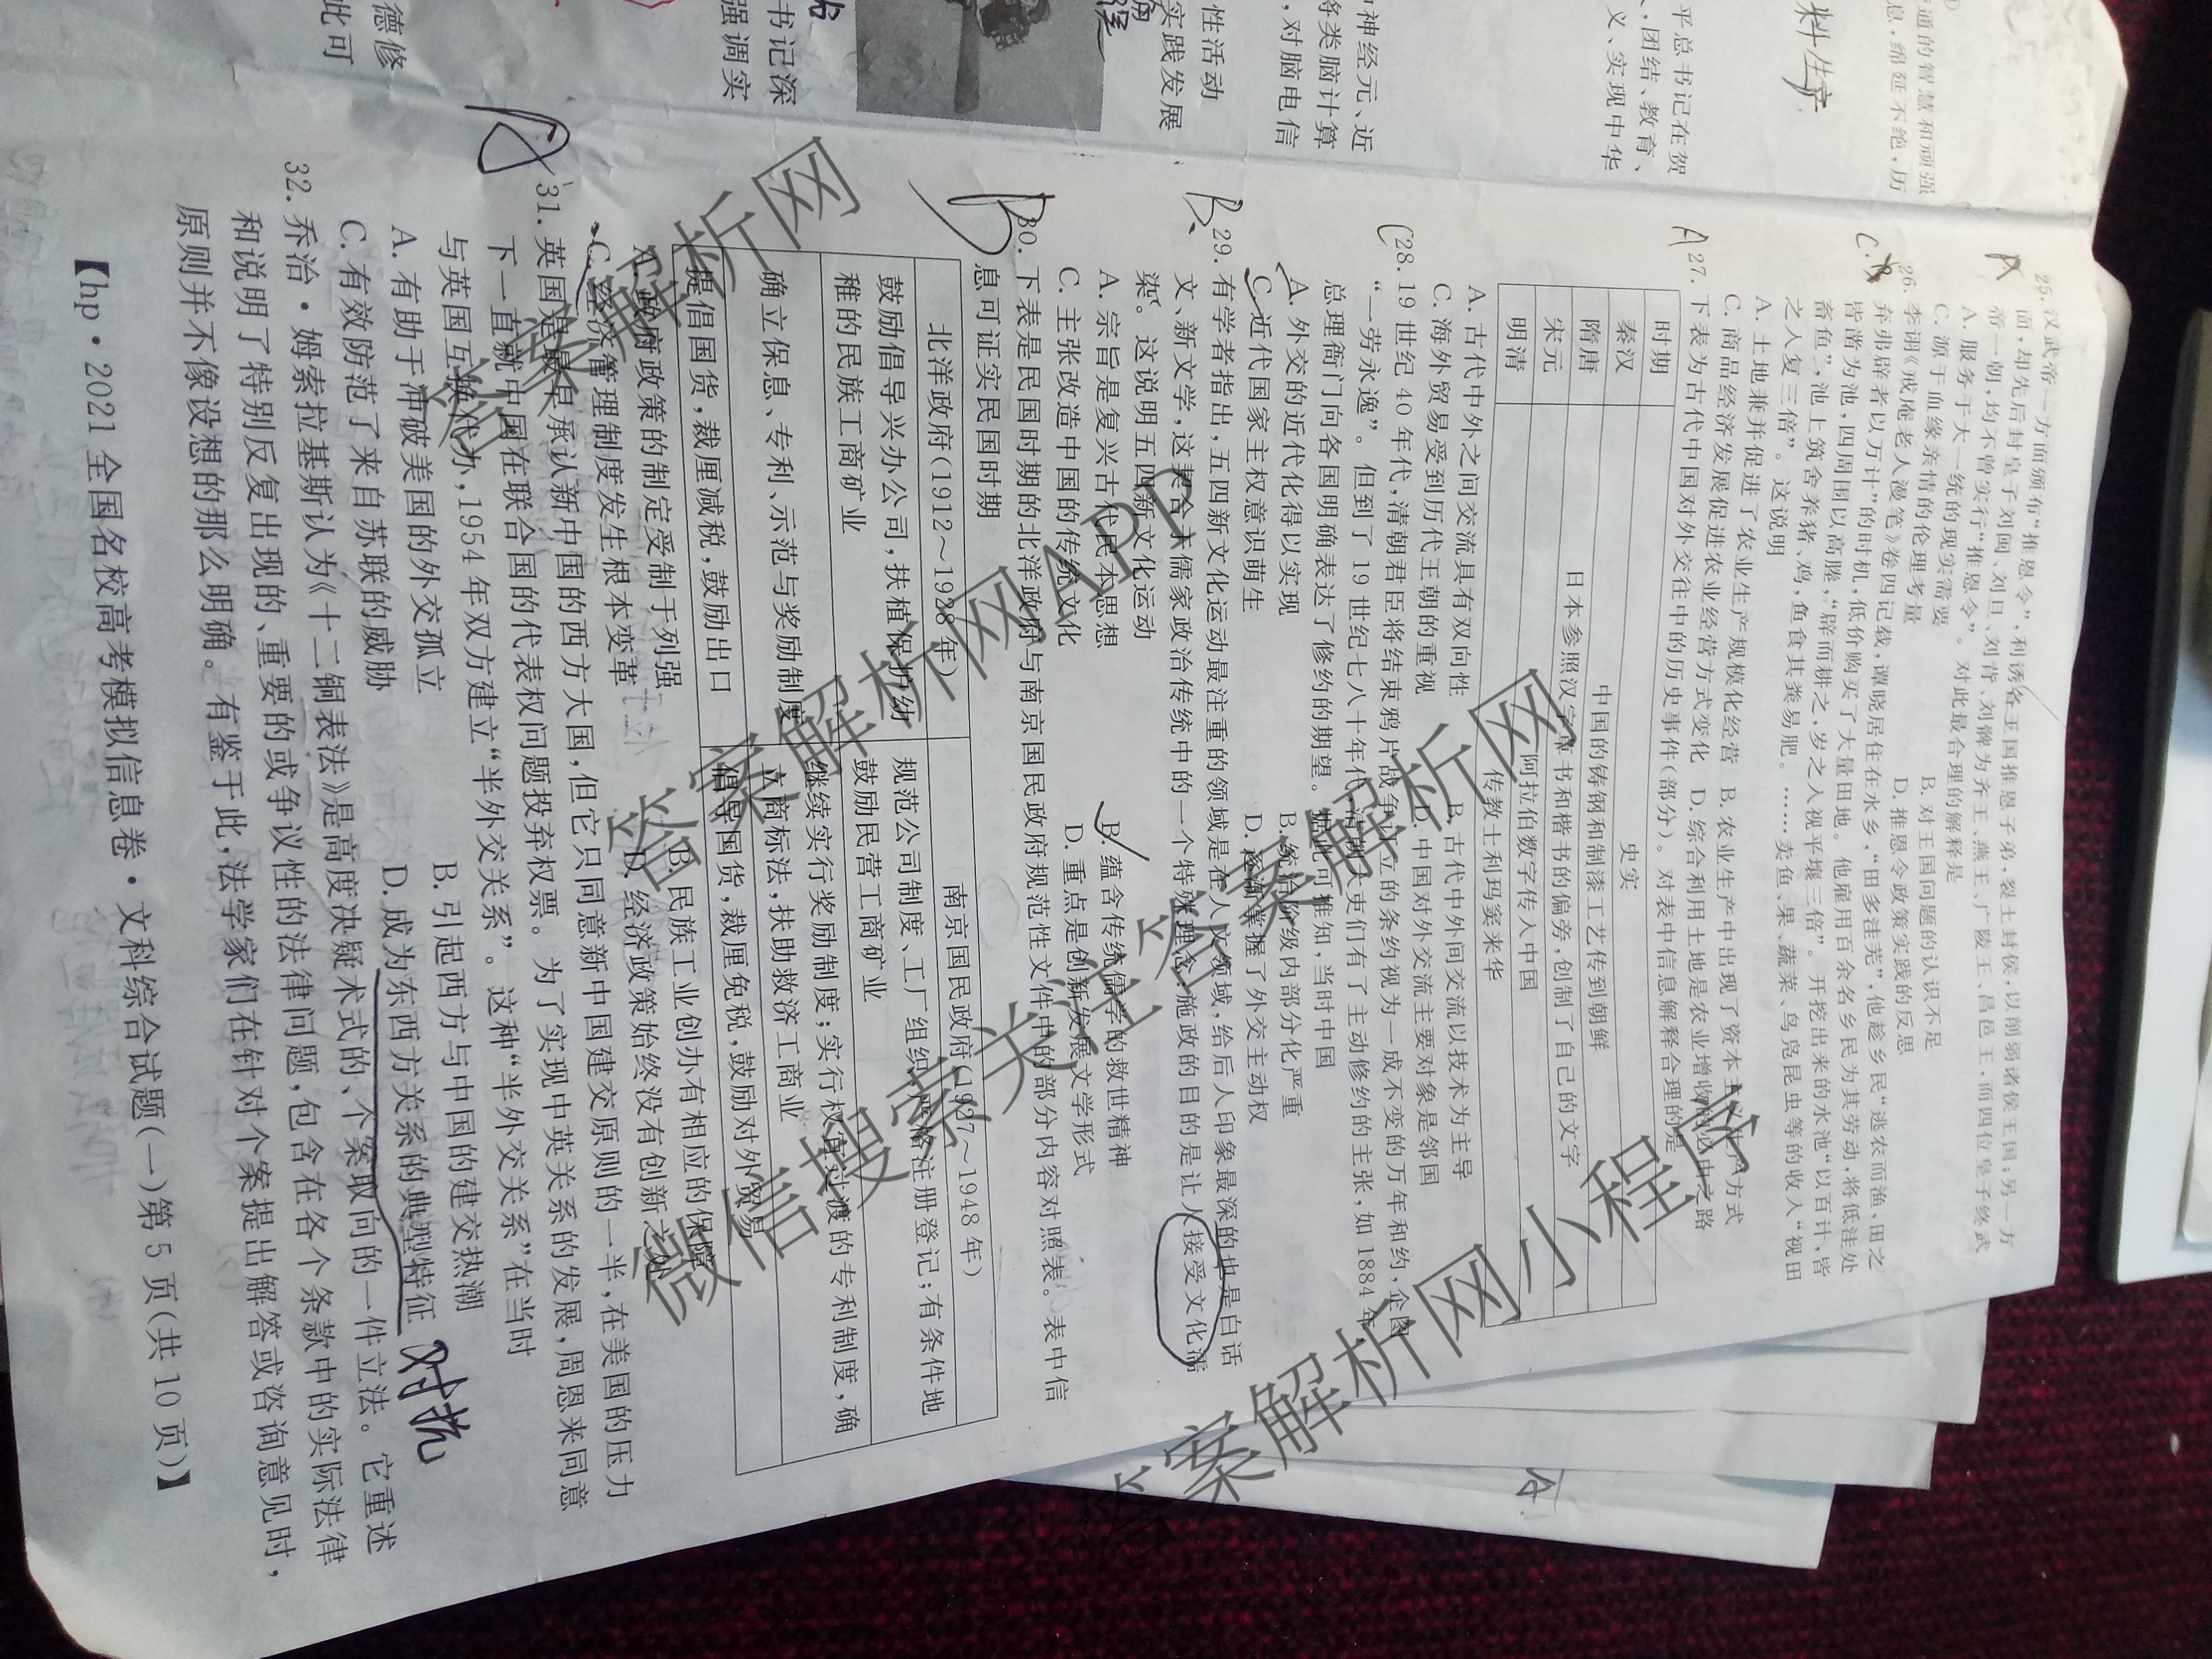 25. 汉武帝一方面颁布“推恩令”，利诱各王国推恩子弟，裂土封侯，以削弱诸侯王国；另一方
面，却先后封皇子刘闳、刘旦、刘胥、刘髆为齐王、燕王、广陵王、昌邑王，而四位皇子终武
帝一朝，均不曾实行“推恩令”。对此最合理的解释是
A. 服务于大一统的现实需要 B. 对王国问题的认识不足
C. 源于血缘亲情的伦理考量 D. 推恩令政策实践的反思
26. 李诩《戒庵老人漫笔》卷四记载，谭晓居住在水乡，“田多洼芜”，他趁乡民“逃农而渔，田之
弃弗辟者以万计”的时机，低价购买了大量田地。他雇用百余名乡民为其劳动，将低洼处
皆凿为池，四周围以高塍，“辟而耕之，岁之入视平壤三倍”。开挖出来的水池“以百计，皆
畜鱼”，池上筑舍养猪、鸡，鱼食其粪易肥。……卖鱼、果、蔬菜、鸟凫昆虫等的收入“视田
之入复三倍”。这说明
A. 土地兼并促进了农业生产规模化经营 B. 农业生产中出现了资本主义生产方式
C. 商品经济发展促进农业经营方式变化 D. 综合利用土地是农业增收的必由之路
27. 下表为古代中国对外交往中的历史事件（部分）。对表中信息解释合理的是
时期 史实
秦汉 中国的铸钢和制漆工艺传到朝鲜
隋唐 日本参照汉字草书和楷书的偏旁，创制了自己的文字
宋元 阿拉伯数字传入中国
明清 传教士利玛窦来华
A. 古代中外之间交流具有双向性 B. 古代中外间交流以技术为主导
C. 海外贸易受到历代王朝的重视 D. 中国对外交流主要对象是邻国
28. 19世纪40年代，清朝君臣将结束鸦片战争订立的条约视为一成不变的万年和约，企图
“一劳永逸”。但到了19世纪七八十年代，清朝大吏们有了主动修约的主张，如1884年
总理衙门向各国明确表达了修约的期望。据此可推知，当时中国
A. 外交的近代化得以实现 B. 统治阶级内部分化严重
C. 近代国家主权意识萌生 D. 逐渐掌握了外交主动权
29. 有学者指出，五四新文化运动最注重的领域是在人文领域，给后人印象最深的也是白话
文、新文学，这契合大儒家政治传统中的一个特殊理念：施政的目的是让人接受文化濡
染。这说明五四新文化运动
A. 宗旨是复兴古代民本思想 B. 蕴含传统儒学的救世精神
C. 主张改造中国的传统文化 D. 重点是创新发展文学形式
30. 下表是民国时期的北洋政府与南京国民政府规范性文件中的部分内容对照表。表中信
息可证实民国时期
北洋政府（1912～1928年） 南京国民政府（1927～1948年）
鼓励倡导兴办公司，扶植保护幼 规范公司制度、工厂组织，严格注册登记；有条件地
稚的民族工商矿业 鼓励民营工商矿业
确立保息、专利、示范与奖励制度 继续实行奖励制度；实行权宜过渡的专利制度，确
立商标法，扶助救济工商业
提倡国货，裁厘减税，鼓励出口 倡导国货，裁厘免税，鼓励对外贸易
A. 政府政策的制定受制于列强 B. 民族工业创办有相应的保障
C. 经济管理制度发生根本变革 D. 经济政策始终没有创新之处
31. 英国是最早承认新中国的西方大国，但它只同意新中国建交原则的一半，在美国的压力
下一直就中国在联合国的代表权问题投弃权票。为了实现中英关系的发展，周恩来同意
与英国互换代办，1954年双方建立“半外交关系”。这种“半外交关系”在当时
A. 有助于冲破美国的外交孤立 B. 引起西方与中国的建交热潮
C. 有效防范了来自苏联的威胁 D. 成为东西方关系的典型特征 对抗
32. 乔治·姆索拉基斯认为《十二铜表法》是高度决疑术式的、个案取向的一件立法。它重述
和说明了特别反复出现的、重要的或争议性的法律问题，包含在各个条款中的实际法律
原则并不像设想的那么明确。有鉴于此，法学家们在针对个案提出解答或咨询意见时，
【hp·2021全国名校高考模拟信息卷·文科综合试题（一）第5页（共10页）】
A
C.
A
C
B
B
通的智慧和顽强
息，绵延不绝，历
料生产
平总书记在贺
，团结、教育、
义、实现中华
神经元、近
等类脑计算
，对脑电信
性活动
实践发展
书记深
强调实
德修
此可
答案解析网
答案解析网APP
微信搜索关注答案解析网
答案解析网小程序